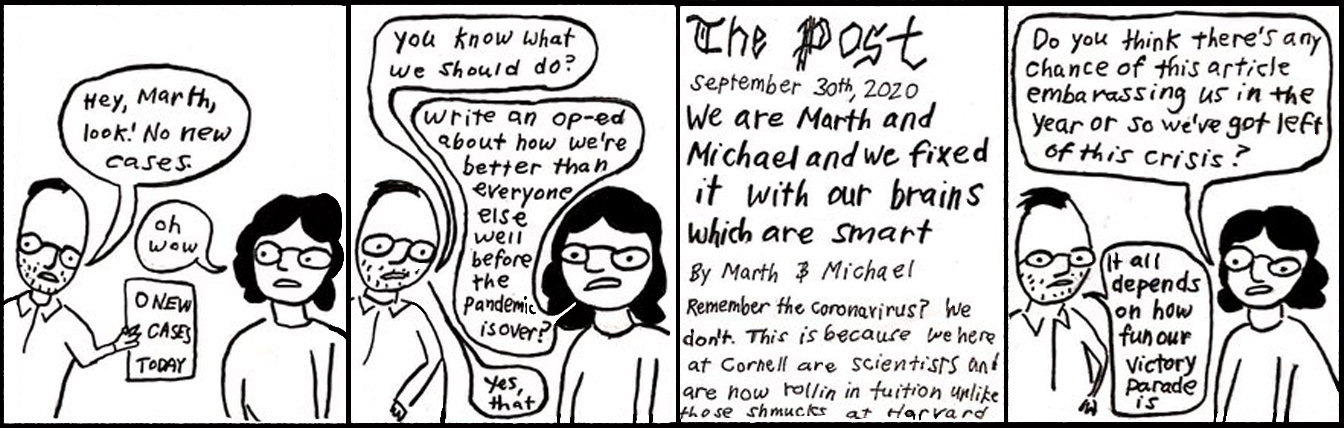 Hey, Marth,
look! No new
cases.
oh
wow
0 NEW
CASES
TODAY
you know what
we should do?
write an op-ed
about how we're
better than
everyone
else
well
before
the
pandemic
is over?
yes,
that
The Post
September 30th, 2020
We are Marth and
Michael and we fixed
it with our brains
which are smart
By Marth & Michael
Remember the coronavirus? We
don't. This is because we here
at Cornell are scientists and
are now rollin in tuition unlike
those shmucks at Harvard
Do you think there's any
chance of this article
embarassing us in the
year or so we've got left
of this crisis?
It all
depends
on how
fun our
victory
parade
is